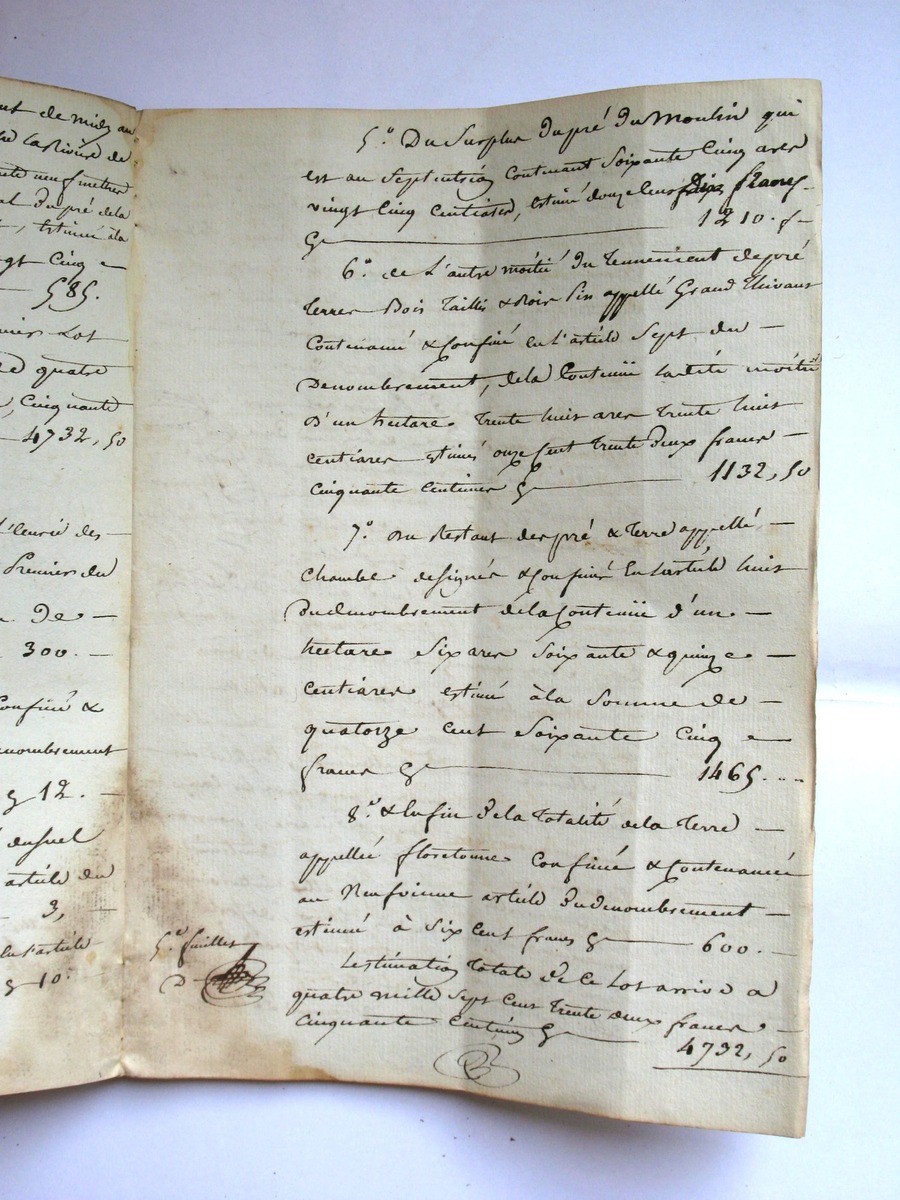 de midy au
la Riviere de
neuf metres
du pré de la
, Estimé à la
Cinq
585.
Lot
quatre
, Cinquante
4732, 50
des
Premier du
De
300.
Confiné &
denombrement
12.
dusuel
article du
3,
l'article
10.
5.e feuillet
5.º Du Surplus du pré du Moulin qui
est au Septentrion Contenant Soixante Cinq ares
vingt Cinq Centiares, estimé douze Cens Dix francs
1210. f
6.º de L'autre moitié du Tennement de pré
Terres Bois Taillis & Bois Pin appellé Grand Thivant
Contenancé & Confiné en l'article Sept du
Denombrement, de la Contenue la dite moitié
D'un hectare Trente huit ares Trente huit
Centiares estimés onze Cent Trente Deux francs
Cinquante Centimes 1132, 50
7.º au Restant des pré & Terre appellé
Chambe designés & Confinés En l'article huit
Du denombrement de la Contenue d'un
hectare Six ares Soixante & quinze
Centiares estimé à la Somme de
quatorze cent Soixante Cinq
francs 1465.
8.º & Enfin De la Totalité de la Terre
appellée floretonne Confinée & Contenancée
au Neufvieme article Du denombrement
estimé à Six Cent francs 600.
Lestimation Totale de Ce Lot arrive a
quatre mille Sept Cent Trente deux francs
Cinquante Centimes
4732, 50